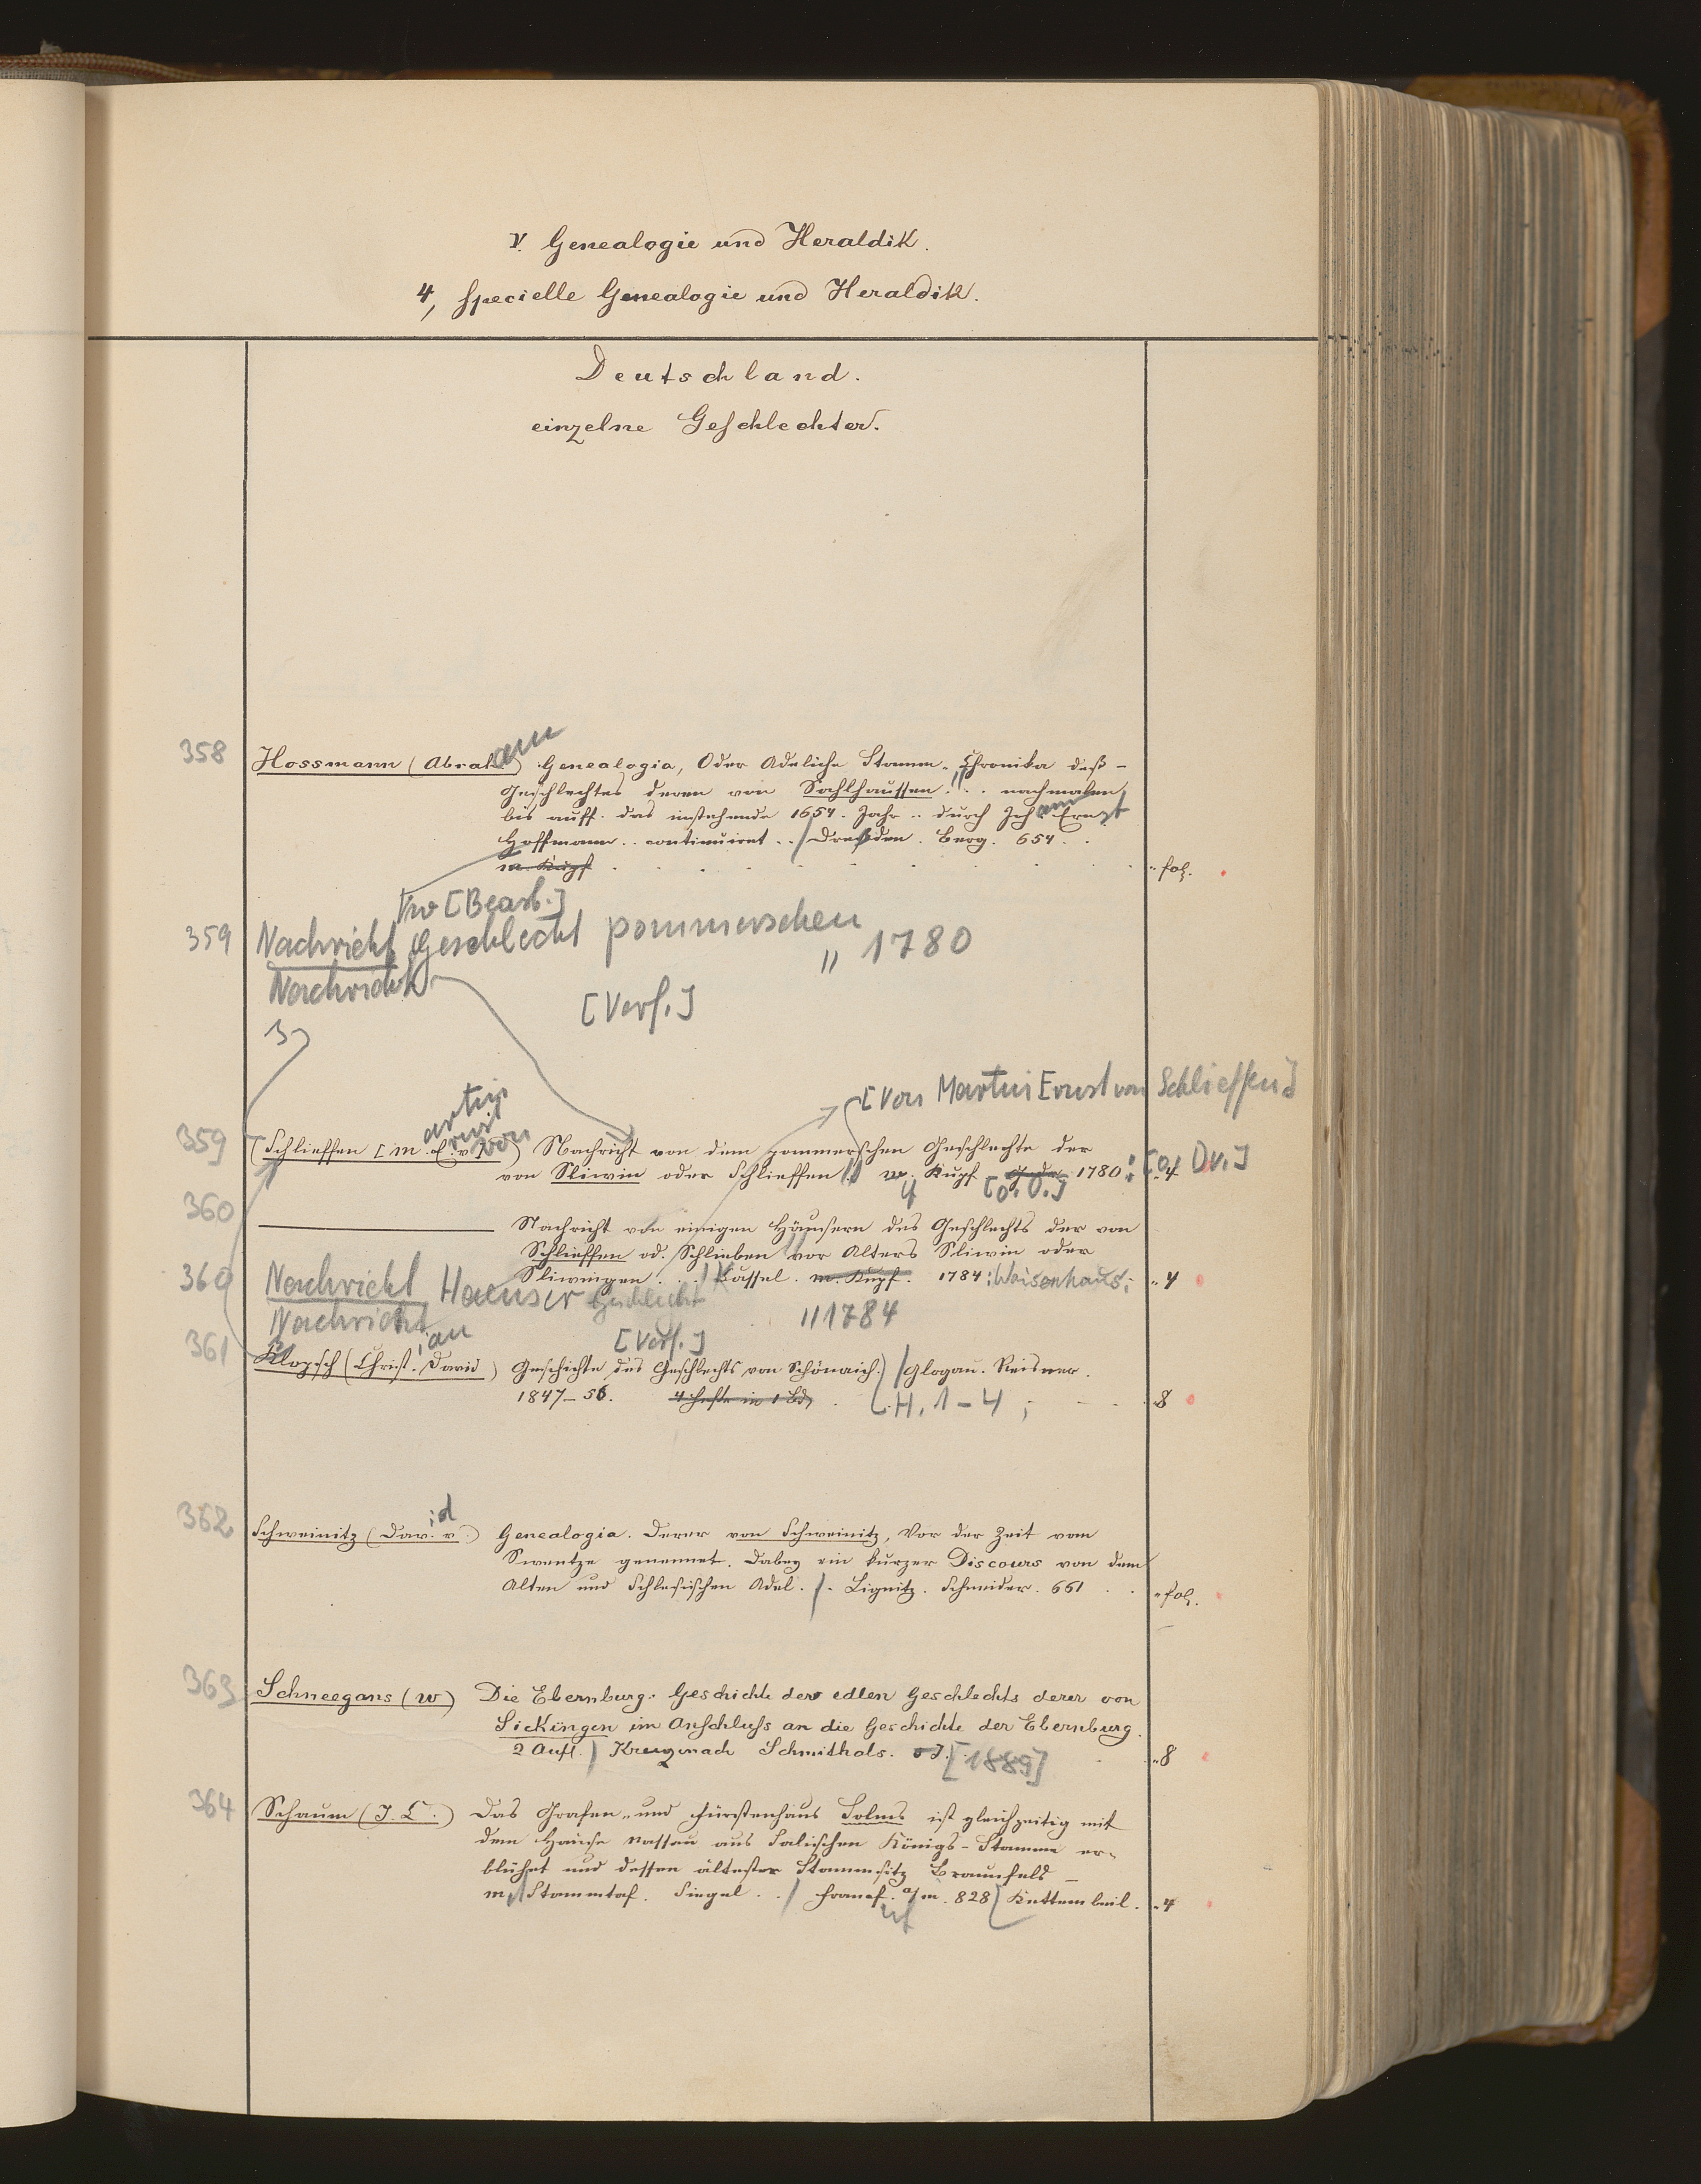 V. Genealogie und Heraldik.
4, Specielle Genealogie und Heraldik.
Deutschland.
einzelne Geschlechter.
358 Hossmann (Abraham) Genealogia, Oder Adeliche Stamm-Chronika deß-
Geschlechtes derer von Sahlhaussen . . . nachmalen
bis auff das instehende 1654. Jahr .. durch Joh Ernst
Hoffmann .. continuiret .. / Dresden. Berg. 654 . .
m. Kupf . . . . . . . . . fol.
[Bearb.]
359 Nachricht Geschlecht pommerschen
Nachricht " 1780
[Verf.]
[Von Martin Ernst von Schlieffen]
359 (Schlieffen [Martin Ernst von]) Nachricht von dem pommerschen Geschlechte der
von Sliwin oder Schlieffen m. Kupf [o. O.] 1780: [o. Dr.] 4
360 ——— Nachricht von einigen Häusern des Geschlechts der von
Schlieffen od. Schlieben vor Alters Sliwin oder
Sliwingen . . . / Kassel. m. Kupf. 1784: Waisenhaus; "4
360 Nachricht Haeuser Geschlecht
Nachricht " 1784
[Verf.]
361 Klopsch (Christian David) Geschichte des Geschlechts von Schönaich. / Glogau. Reisner.
1847-56. 4 Hefte in 1 Bd, H. 1-4; 8
362 Schweinitz (David v.) Genealogia. Derer von Schweinitz, Vor der Zeit vom
Swentze genennet. Dabey ein kurzer Discours von dem
Alten und Schlesischen Adel. / Lignitz. Schneider. 661 . . "fol.
363 Schneegans (W) Die Ebernburg. Geschichte des edlen Geschlechts derer von
Sickingen im Anschluss an die Geschichte der Ebernburg.
2 Aufl. / Kreuznach Schmithals. o J. [1889] "8
364 Schaum (J. C.) Das Grafen- und Fürstenhaus Solms ist gleichzeitig mit
dem Hause Nassau aus Salischen Königs-Stamme er-
blühet und dessen ältester Stammsitz Braunfels –
m. Stammtaf. Siegel . . / Francf. a/m. 828 / Kettembeil. "4